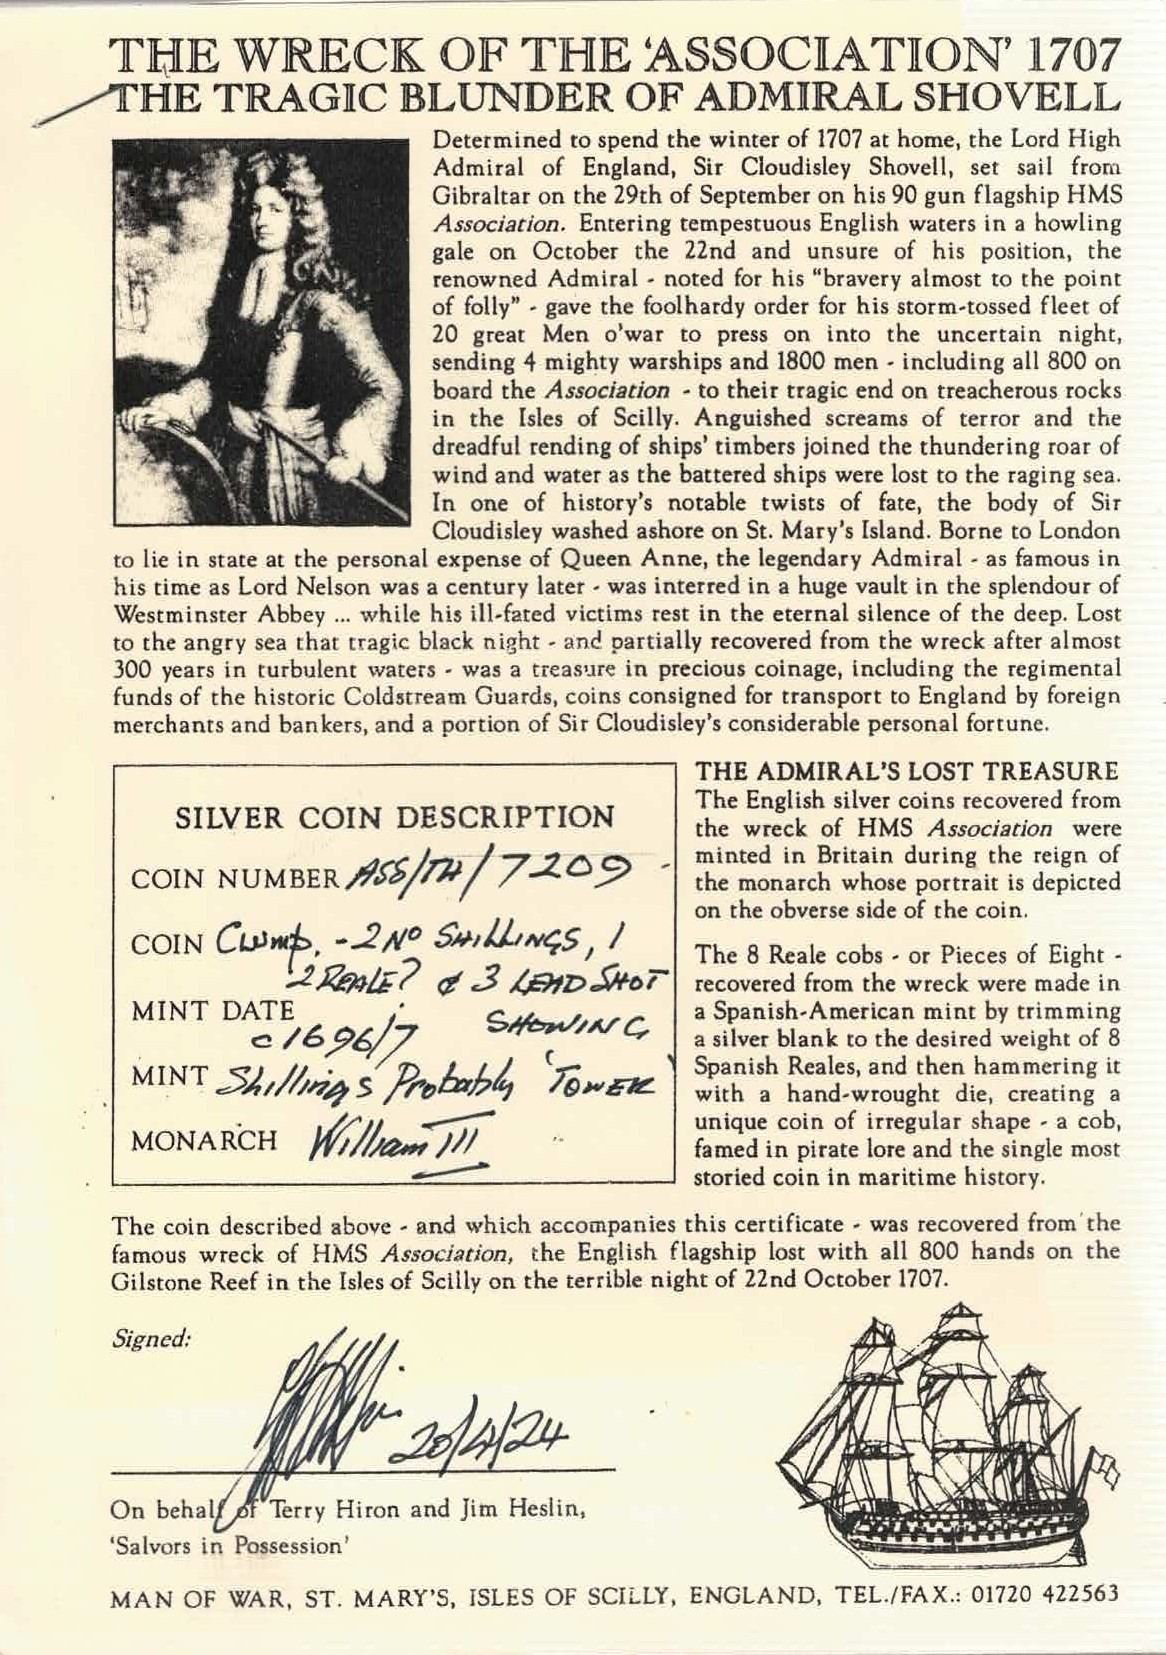 THE WRECK OF THE ‘ASSOCIATION’ 1707
THE TRAGIC BLUNDER OF ADMIRAL SHOVELL
Determined to spend the winter of 1707 at home, the Lord High
Admiral of England, Sir Cloudisley Shovell, set sail from
Gibraltar on the 29th of September on his 90 gun flagship HMS
Association. Entering tempestuous English waters in a howling
gale on October the 22nd and unsure of his position, the
renowned Admiral - noted for his “bravery almost to the point
of folly” - gave the foolhardy order for his storm-tossed fleet of
20 great Men o'war to press on into the uncertain night,
sending 4 mighty warships and 1800 men - including all 800 on
board the Association - to their tragic end on treacherous rocks
in the Isles of Scilly. Anguished screams of terror and the
dreadful rending of ships' timbers joined the thundering roar of
wind and water as the battered ships were lost to the raging sea.
In one of history's notable twists of fate, the body of Sir
Cloudisley washed ashore on St. Mary's Island. Borne to London
to lie in state at the personal expense of Queen Anne, the legendary Admiral - as famous in
his time as Lord Nelson was a century later - was interred in a huge vault in the splendour of
Westminster Abbey ... while his ill-fated victims rest in the eternal silence of the deep. Lost
to the angry sea that tragic black night - and partially recovered from the wreck after almost
300 years in turbulent waters - was a treasure in precious coinage, including the regimental
funds of the historic Coldstream Guards, coins consigned for transport to England by foreign
merchants and bankers, and a portion of Sir Cloudisley's considerable personal fortune.
SILVER COIN DESCRIPTION
COIN NUMBER ASS/TH/7209
COIN Clump. - 2 No SHILLINGS, 1
2 REALE? & 3 LEAD SHOT
SHOWING
MINT DATE c 1696/7
MINT Shillings Probably 'TOWER'
MONARCH William III
THE ADMIRAL'S LOST TREASURE
The English silver coins recovered from
the wreck of HMS Association were
minted in Britain during the reign of
the monarch whose portrait is depicted
on the obverse side of the coin.
The 8 Reale cobs - or Pieces of Eight -
recovered from the wreck were made in
a Spanish-American mint by trimming
a silver blank to the desired weight of 8
Spanish Reales, and then hammering it
with a hand-wrought die, creating a
unique coin of irregular shape - a cob,
famed in pirate lore and the single most
storied coin in maritime history.
The coin described above - and which accompanies this certificate - was recovered from the
famous wreck of HMS Association, the English flagship lost with all 800 hands on the
Gilstone Reef in the Isles of Scilly on the terrible night of 22nd October 1707.
Signed:
20/4/24
On behalf of Terry Hiron and Jim Heslin,
‘Salvors in Possession’
MAN OF WAR, ST. MARY'S, ISLES OF SCILLY, ENGLAND, TEL./FAX.: 01720 422563